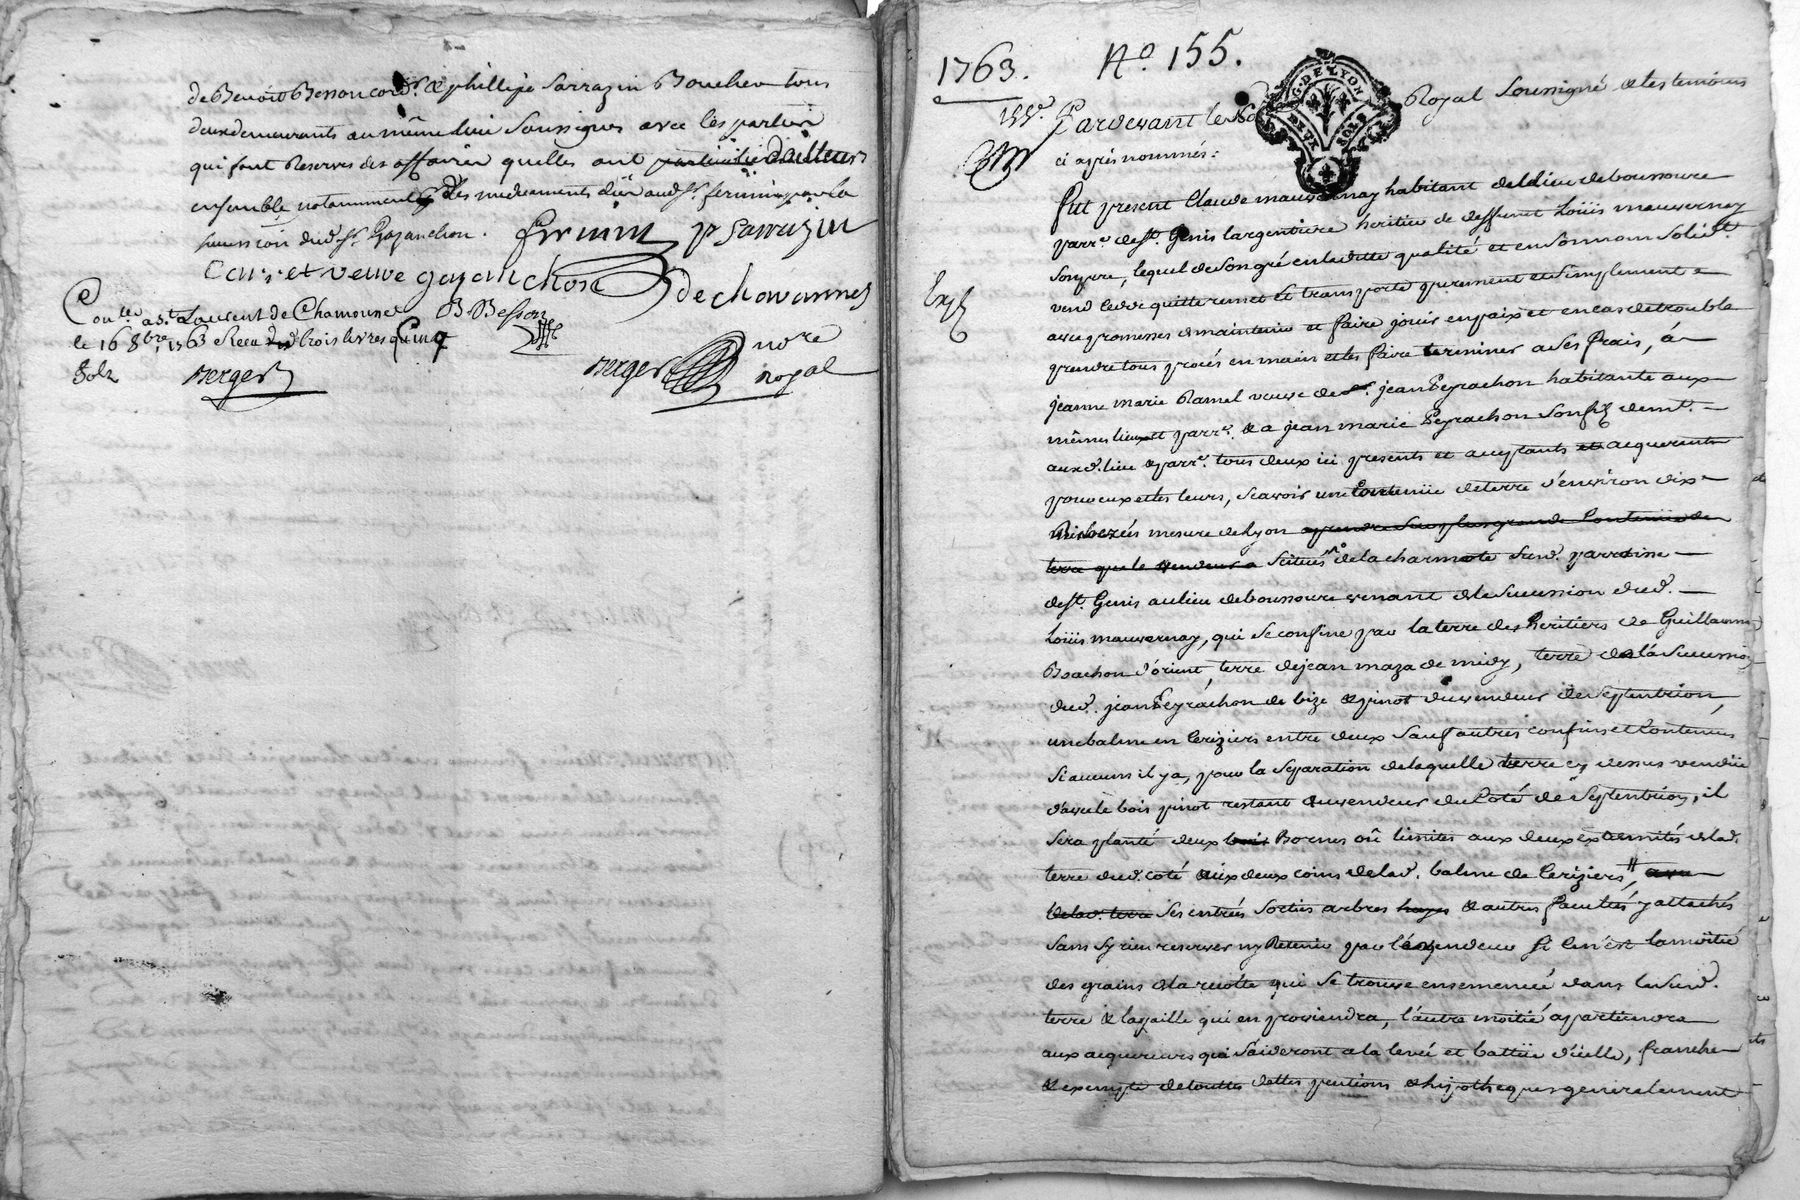 de Benoit Besson cord.r & phillipe Sarrazin Boucher tous
deux demeurants au même lieu Soussignes avec les parties
qui font Reserves des affaires quelles ont d'ailleurs
ensemble notamment des medicaments dûs aud. s.r fermin par la
succession dud. s.r Gayanchon.
fermin p Sarrazin
veuve gayanchon
de chavannes
Con.lé a s.t Laurent de Chamousset
B. Besson
le 16 8bre 1763 Recu trois livres cinq
Sols
Berger
Berger no.re
royal
1763. N.o 155.
G. DE LYON
DEUX SOLS
Pardevant le No Royal Soussigné & les temoins
ci après nommés:
fut present Claude mauvernay habitant du lieu de boussoure
parr.e de s.t Genis largentiere heritier de deffunt Loüis mauvernay
Son pere, lequel de Son gré en laditte qualité et en Son nom Solid.t
vend cede quitte remet et transporte purement et Simplement
avec promesses de maintenir et faire jouir en paix et en cas de trouble
prendre tous procés en main et les faire terminer a Ses frais, á
jeanne marie Ramel veuve de jean Peyrachon habitante aux
mêmes lieu et parr.e & a jean marie Peyrachon Son fils dem.t
aud. lieu & parr.e tous deux ici presents et acceptants et acquereurs
pour eux et les leurs, Scavoir une Contenüe de terre d'environ dix
Bicherées mesure de Lyon a prendre Sur plus grande Contenüe de
terre que le vendeur a Scitüés de la charmote Sud. parroisse
de s.t Genis au lieu de boussoure venant de la Succession dud.
Loüis mauvernay, qui Se confine par la terre des heritiers de Guillaume
Brachon d'orient, terre de jean maza de midy, terre de la Succession
dud. jean Peyrachon de bize & pinot du vendeur de Septentrion,
une balme en Ceriziers entre deux Sauf autres confins et Contenues
Si aucuns il y a, pour la Separation de laquelle terre cy dessus vendüe
d'avec le bois pinot restant au vendeur du Coté de Septentrion, il
Sera planté deux bornes où limites aux deux extremités de lad.
terre dud. coté aux deux coins de lad. balme de Ceriziers,
de lad. terre Ses entrées Sorties arbres hayes & autres facultés y attachés
Sans S'y rien reserver ny Retenir par le vendeur Si Ce n'est la moitié
des grains de la recolte qui Se trouve ensemencée dans la Sud.
terre & la paille qui en proviendra, l'autre moitié appartiendra
aux acquereurs qui S'aideront a la levée et battüe d'icelle, franche
& exempte de touttes dettes pentions & hypotheques generalement